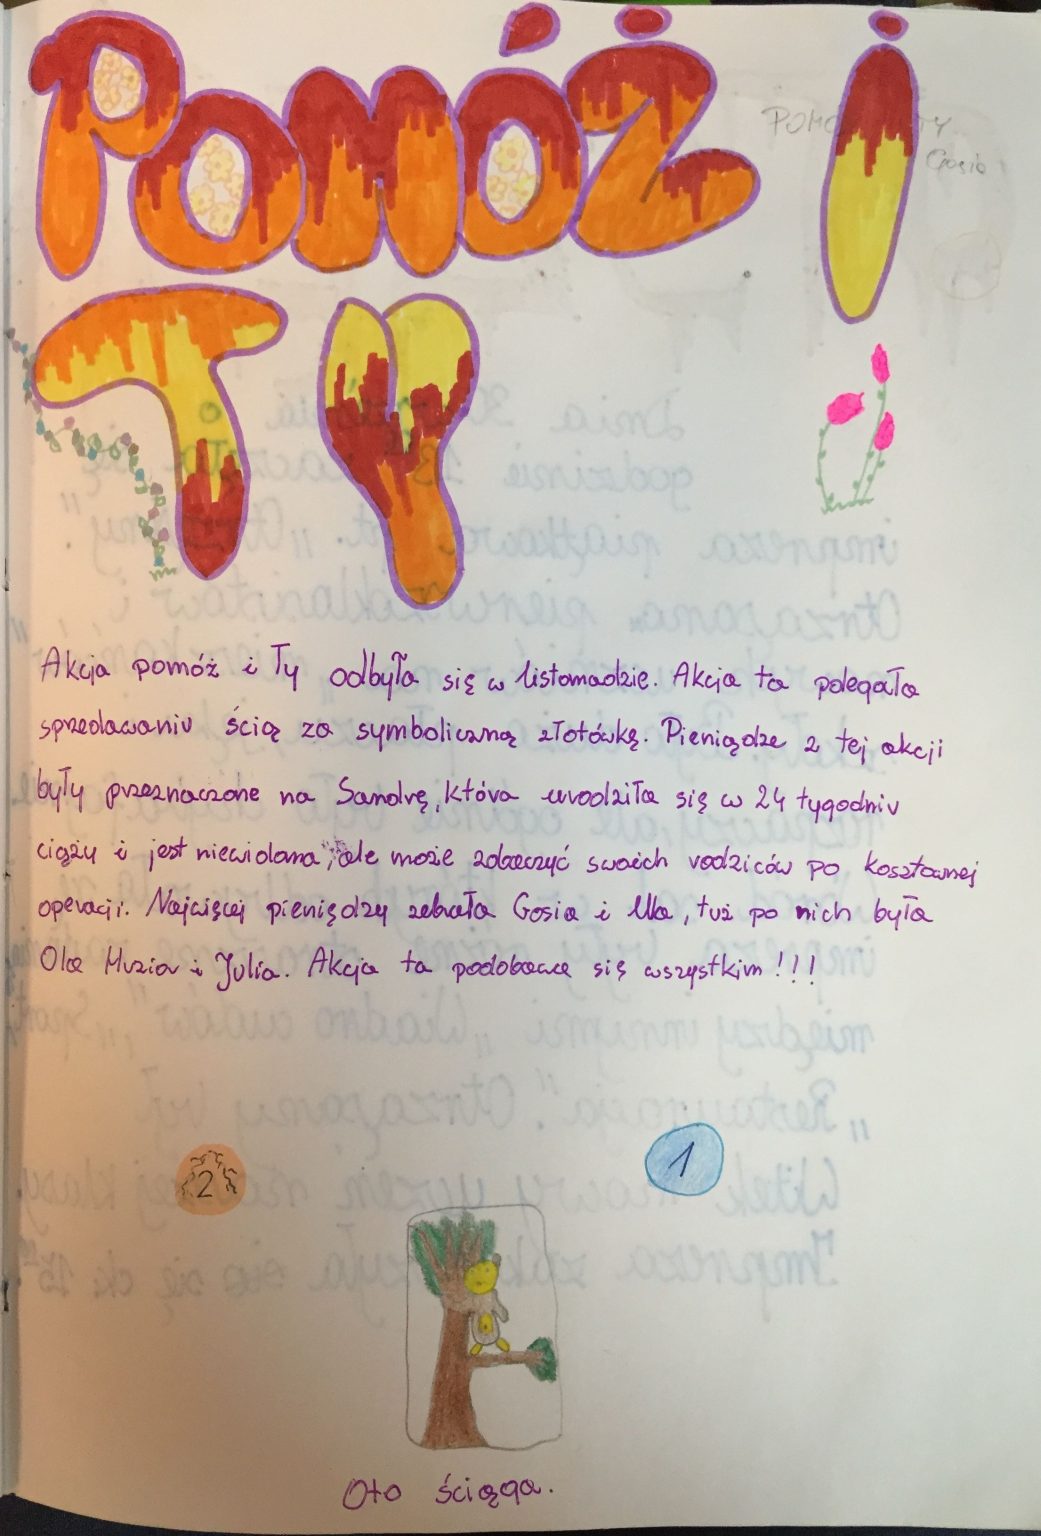 POMÓŻ i
TY
Akcja pomóż i Ty odbyła się w listomadzie. Akcja ta polegała
sprzedawaniu ściąg za symboliczną złotówkę. Pieniądze z tej akcji
były przeznaczone na Sandrę, która urodziła się w 24 tygodniu
ciąży i jest niewidoma, ale może zobaczyć swoich rodziców po kosztownej
operacji. Najwięcej pieniędzy zebrała Gosia i Ula, tuż po nich była
Ola Muzia i Julia. Akcja ta podobawa się wszystkim!!!
2 1
Oto ściąga.